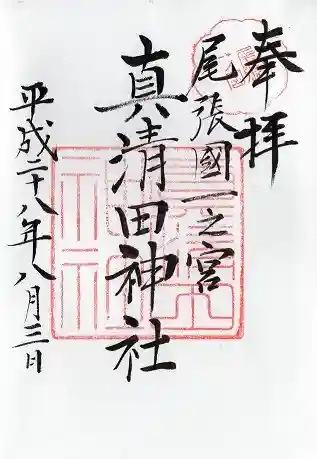 奉拝
尾張國一之宮
真清田神社
平成二十八年八月三日